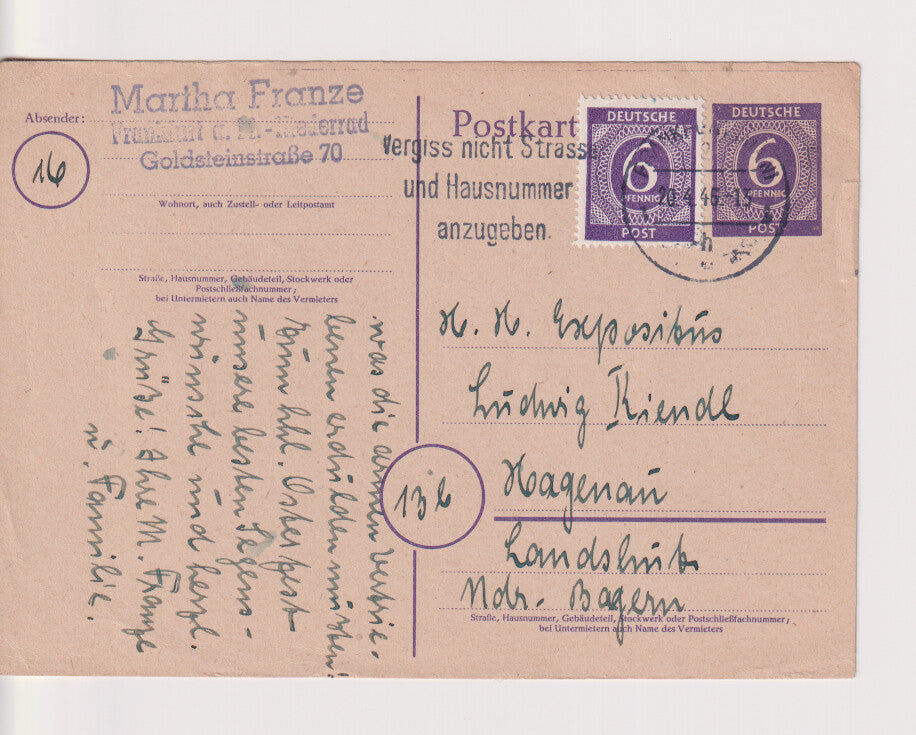 Absender:
Martha Franze
Frankfurt a. M.-Niederrad
Goldsteinstraße 70
16
Wohnort, auch Zustell- oder Leitpostamt
Straße, Hausnummer, Gebäudeteil, Stockwerk oder
Postschließfachnummer;
bei Untermietern auch Name des Vermieters
Postkart
Vergiss nicht Strasse
und Hausnummer
anzugeben.
DEUTSCHE
6
PFENNIG
POST
DEUTSCHE
6
PFENNIG
POST
20.4.46-13
H. H. Expositus
Ludwig Kiendl
Hagenau
13b
Landshut
Ndr.-Bayern
Straße, Hausnummer, Gebäudeteil, Stockwerk oder Postschließfachnummer;
bei Untermietern auch Name des Vermieters
was die armen Vertrie-
benen erdulden müssen!
Zum hhl. Osterfest
unsere besten Segens-
wünsche und herzl.
Grüße! Ihre M. Franze
u. Familie.